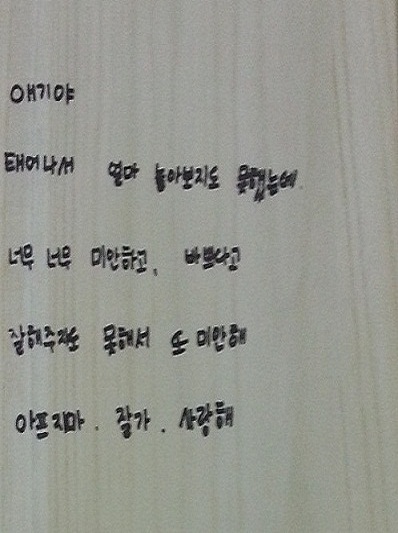 애기야
태어나서 얼마 놀아보지도 못했는데.
너무 너무 미안하고, 바쁘다고
잘해주지도 못해서 또 미안해
아프지마. 잘가. 사랑해